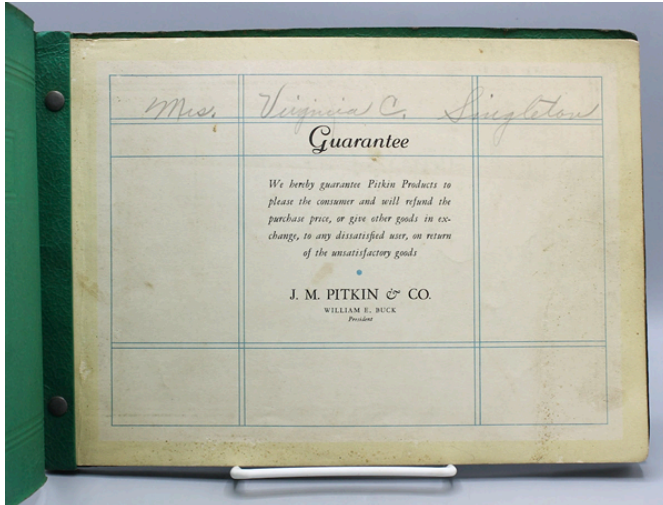 Mrs. Virginia C. Singleton
Guarantee
We hereby guarantee Pitkin Products to
please the consumer and will refund the
purchase price, or give other goods in ex-
change, to any dissatisfied user, on return
of the unsatisfactory goods
J. M. PITKIN & CO.
WILLIAM E. BUCK
President